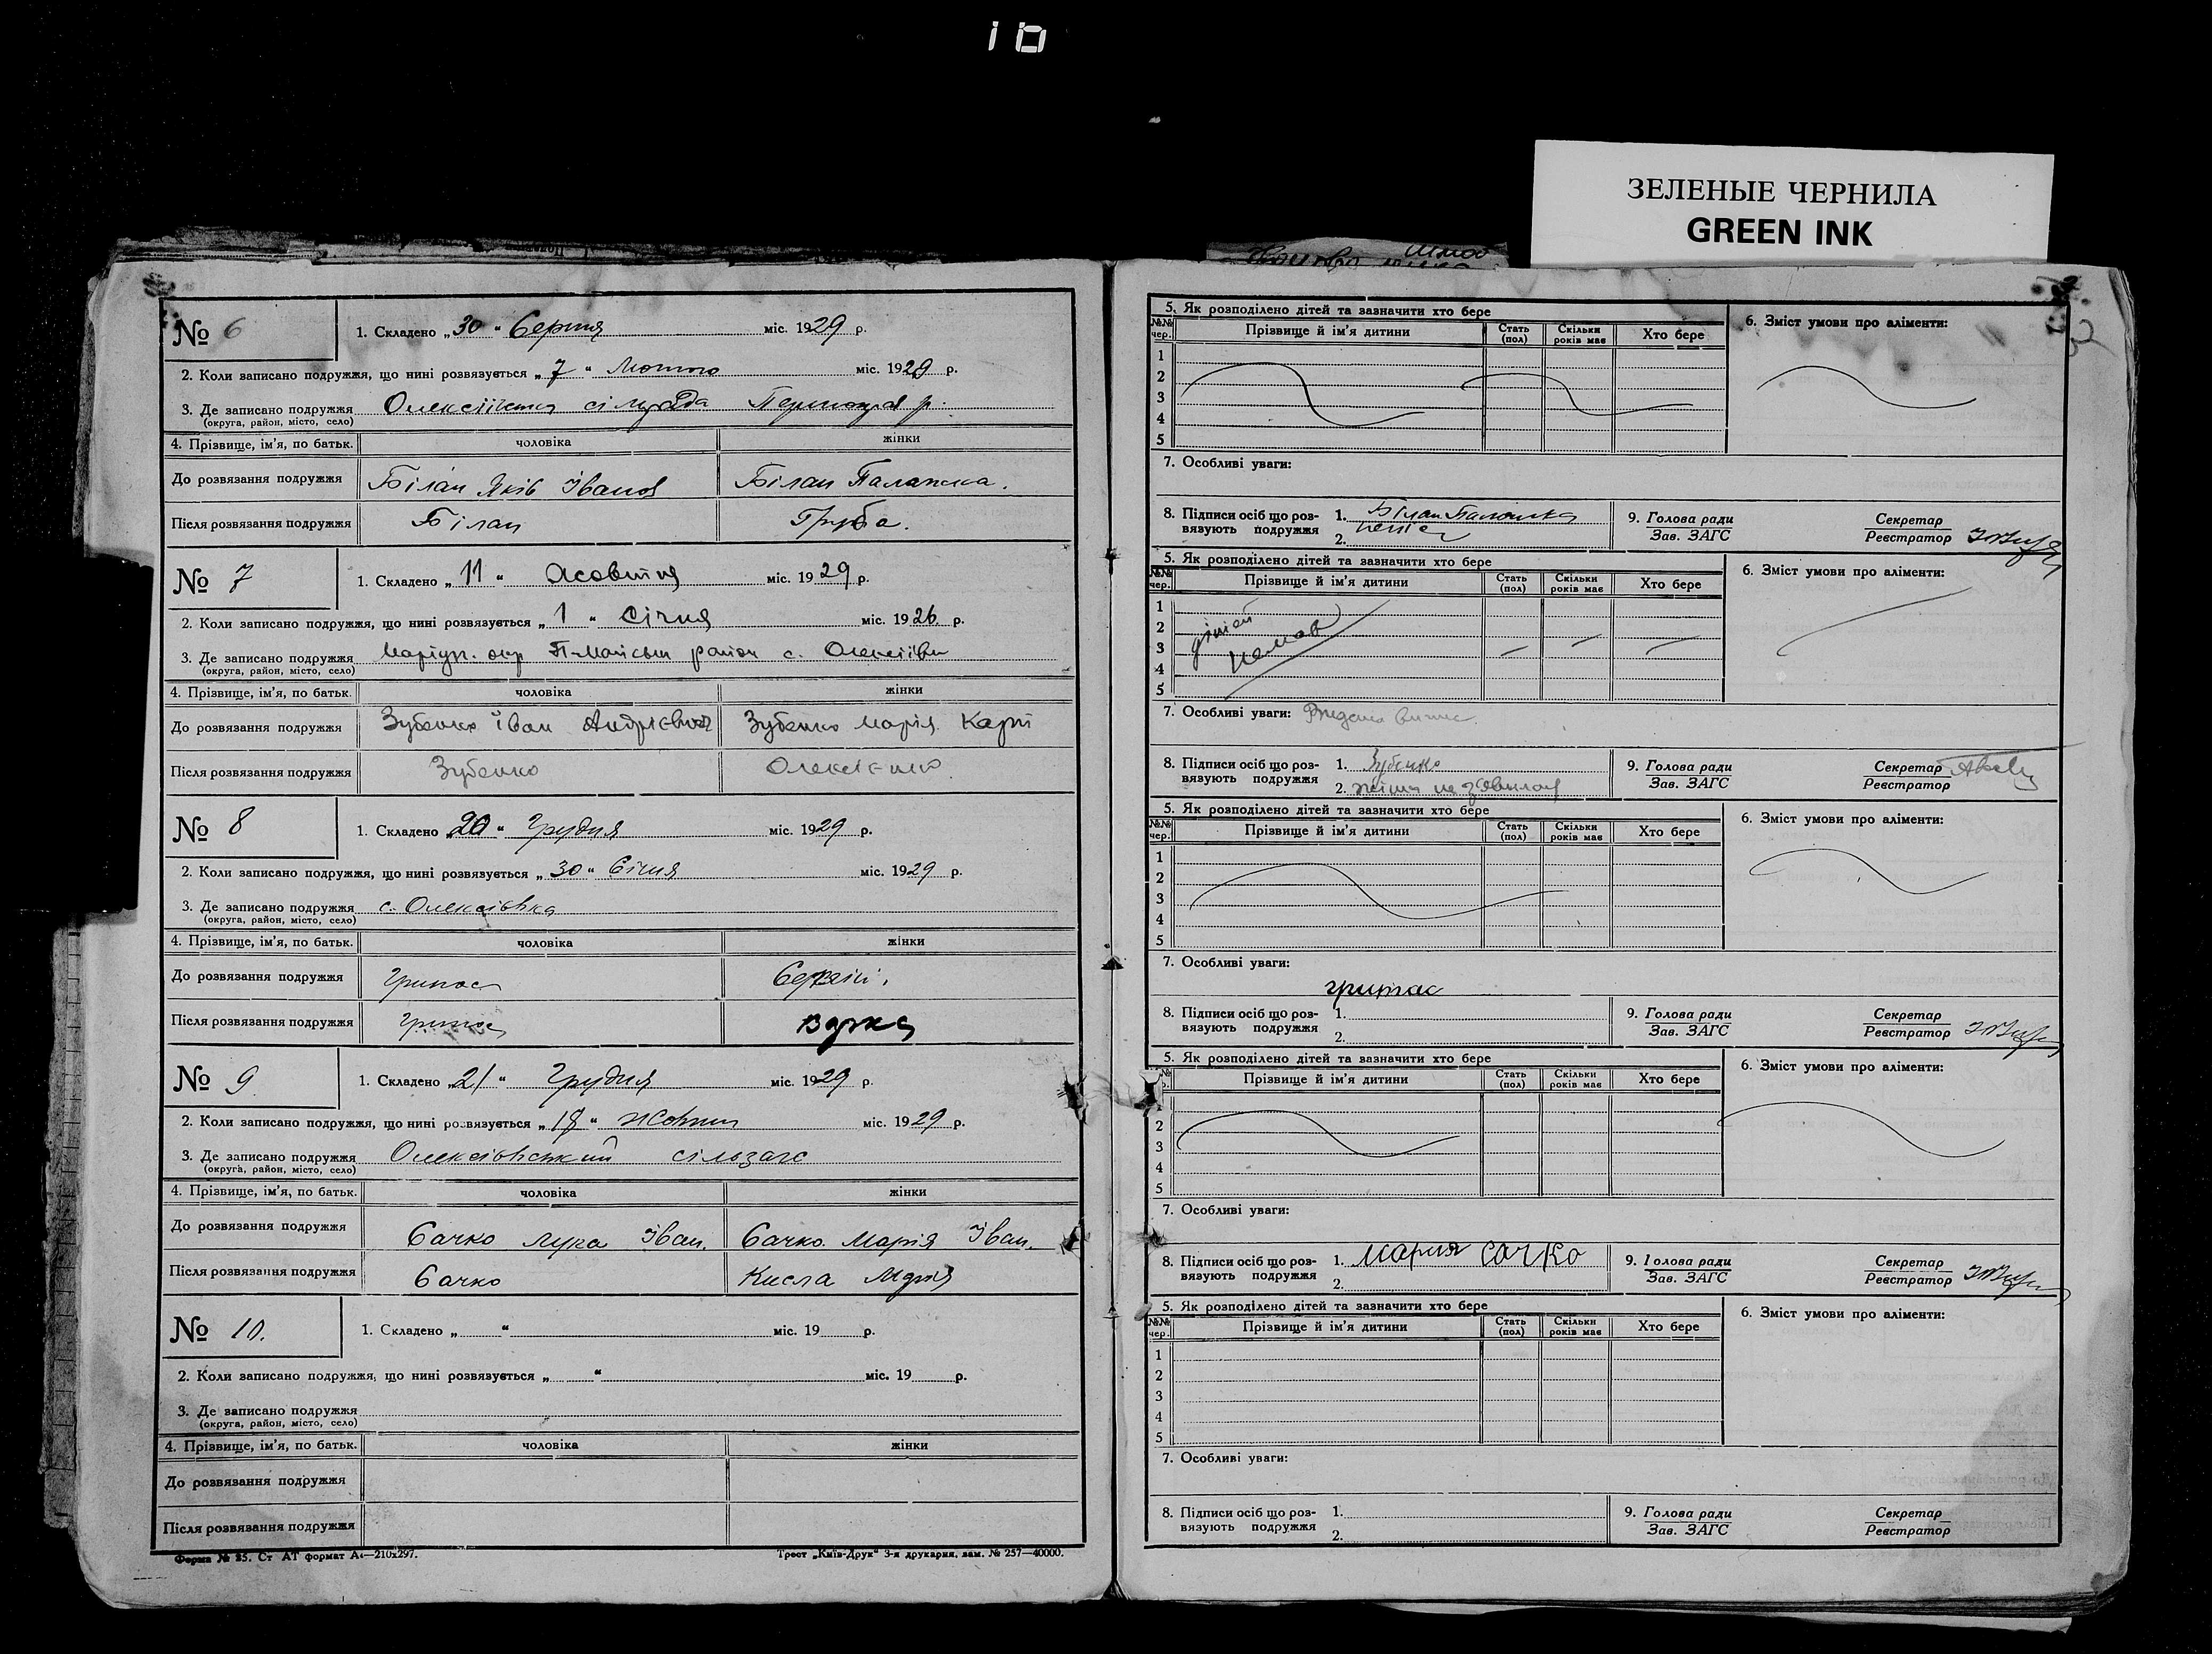 10
ЗЕЛЕНЫЕ ЧЕРНИЛА
GREEN INK
№ 6
1. Складено „30“ Серпня міс. 1929 р.
2. Коли записано подружжя, що нині розвязується „7“ Лютого міс. 1929 р.
3. Де записано подружжя
(округа, район, місто, село)
4. Прізвище, ім'я, по батьк. чоловіка жінки
До розвязання подружжя Білан Яків Іванов Білан Палажка.
Після розвязання подружжя Білан Груба.
№ 7
1. Складено „11“ міс. 1929 р.
2. Коли записано подружжя, що нині розвязується „1“ Січня міс. 1926 р.
3. Де записано подружжя Маріуп. окр. П-Майськ район с. Олексіївка
(округа, район, місто, село)
4. Прізвище, ім'я, по батьк. чоловіка жінки
До розвязання подружжя Зубенко Іван Андрієвич Зубенко Марія Карп
Після розвязання подружжя Зубенко Олексієнко
№ 8
1. Складено „20“ Грудня міс. 1929 р.
2. Коли записано подружжя, що нині розвязується „30“ Січня міс. 1929 р.
3. Де записано подружжя с. Олексіівка
(округа, район, місто, село)
4. Прізвище, ім'я, по батьк. чоловіка жінки
До розвязання подружжя
Після розвязання подружжя
№ 9
1. Складено „21“ Грудня міс. 1929 р.
2. Коли записано подружжя, що нині розвязується „18“ Жовтня міс. 1929 р.
3. Де записано подружжя Олексіівський сільзагс
(округа, район, місто, село)
4. Прізвище, ім'я, по батьк. чоловіка жінки
До розвязання подружжя Сачко Лука Іван. Сачко Марія Іван.
Після розвязання подружжя Сачко Кисла Марія
№ 10.
1. Складено „ “ міс. 19 р.
2. Коли записано подружжя, що нині розвязується „ “ міс. 19 р.
3. Де записано подружжя
(округа, район, місто, село)
4. Прізвище, ім'я, по батьк. чоловіка жінки
До розвязання подружжя
Після розвязання подружжя
Форма № 25. Ст АТ формат А4—210х297. Трест „Київ-Друк“ 3-я друкарня, зам. № 257—40000.
5. Як розподілено дітей та зазначити хто бере
6. Зміст умови про аліменти:
№№ чер. Прізвище й ім'я дитини Стать (пол) Скільки років має Хто бере
1
2
3
4
5
7. Особливі уваги:
8. Підписи осіб що розвязують подружжя 1. Білан Палажка
2.
9. Голова ради
Зав. ЗАГС
Секретар
Реєстратор
5. Як розподілено дітей та зазначити хто бере
6. Зміст умови про аліменти:
№№ чер. Прізвище й ім'я дитини Стать (пол) Скільки років має Хто бере
1
2
3
4
5
дітей
немає
7. Особливі уваги:
8. Підписи осіб що розвязують подружжя 1. Зубенко
2. жінка не зявилась
9. Голова ради
Зав. ЗАГС
Секретар
Реєстратор
5. Як розподілено дітей та зазначити хто бере
6. Зміст умови про аліменти:
№№ чер. Прізвище й ім'я дитини Стать (пол) Скільки років має Хто бере
1
2
3
4
5
7. Особливі уваги:
8. Підписи осіб що розвязують подружжя 1.
2.
9. Голова ради
Зав. ЗАГС
Секретар
Реєстратор
5. Як розподілено дітей та зазначити хто бере
6. Зміст умови про аліменти:
Прізвище й ім'я дитини Стать (пол) Скільки років має Хто бере
2
3
4
5
7. Особливі уваги:
8. Підписи осіб що розвязують подружжя 1. Мария Сачко
2.
9. Голова ради
Зав. ЗАГС
Секретар
Реєстратор
5. Як розподілено дітей та зазначити хто бере
6. Зміст умови про аліменти:
№№ чер. Прізвище й ім'я дитини Стать (пол) Скільки років має Хто бере
1
2
3
4
5
7. Особливі уваги:
8. Підписи осіб що розвязують подружжя 1.
2.
9. Голова ради
Зав. ЗАГС
Секретар
Реєстратор